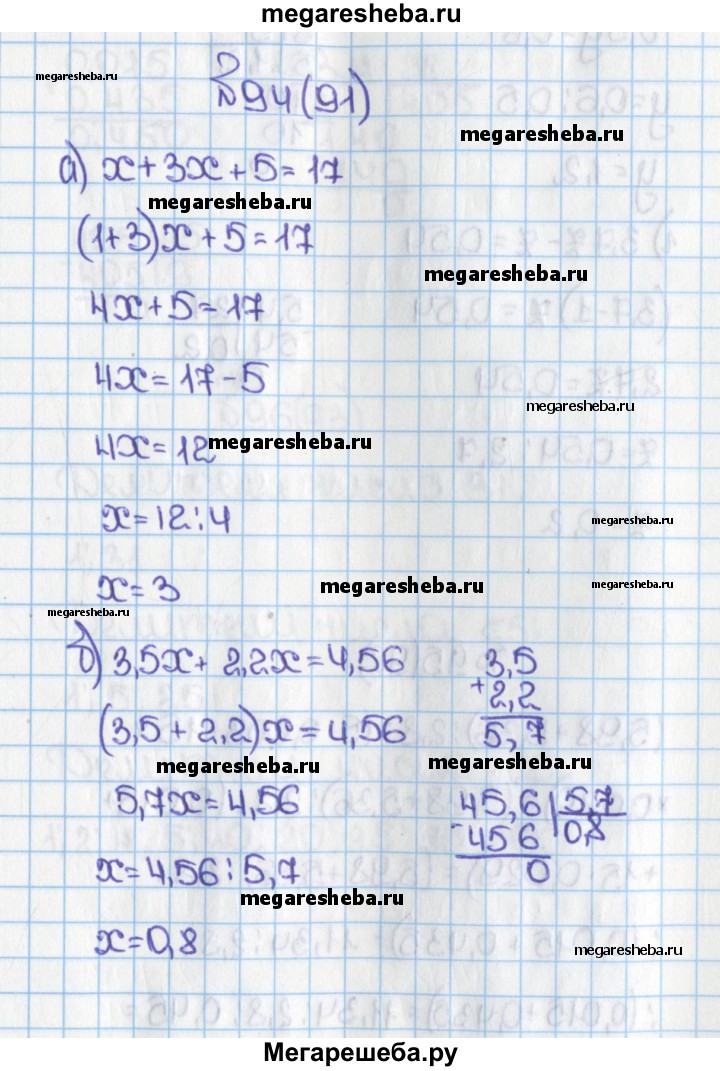 megaresheba.ru
megaresheba.ru
№94(91)
megaresheba.ru
а) x+3x+5=17
megaresheba.ru
(1+3)x+5=17
megaresheba.ru
4x+5=17
4x=17-5
megaresheba.ru
4x=12
megaresheba.ru
x=12:4
megaresheba.ru
x=3
megaresheba.ru
megaresheba.ru
megaresheba.ru
б) 3,5x+2,2x=4,56
3,5
+2,2
5,7
(3,5+2,2)x=4,56
megaresheba.ru
megaresheba.ru
5,7x=4,56
45,6 5,7
-456 0,8
0
x=4,56:5,7
megaresheba.ru
x=0,8
megaresheba.ru
Мегарешеба.ру